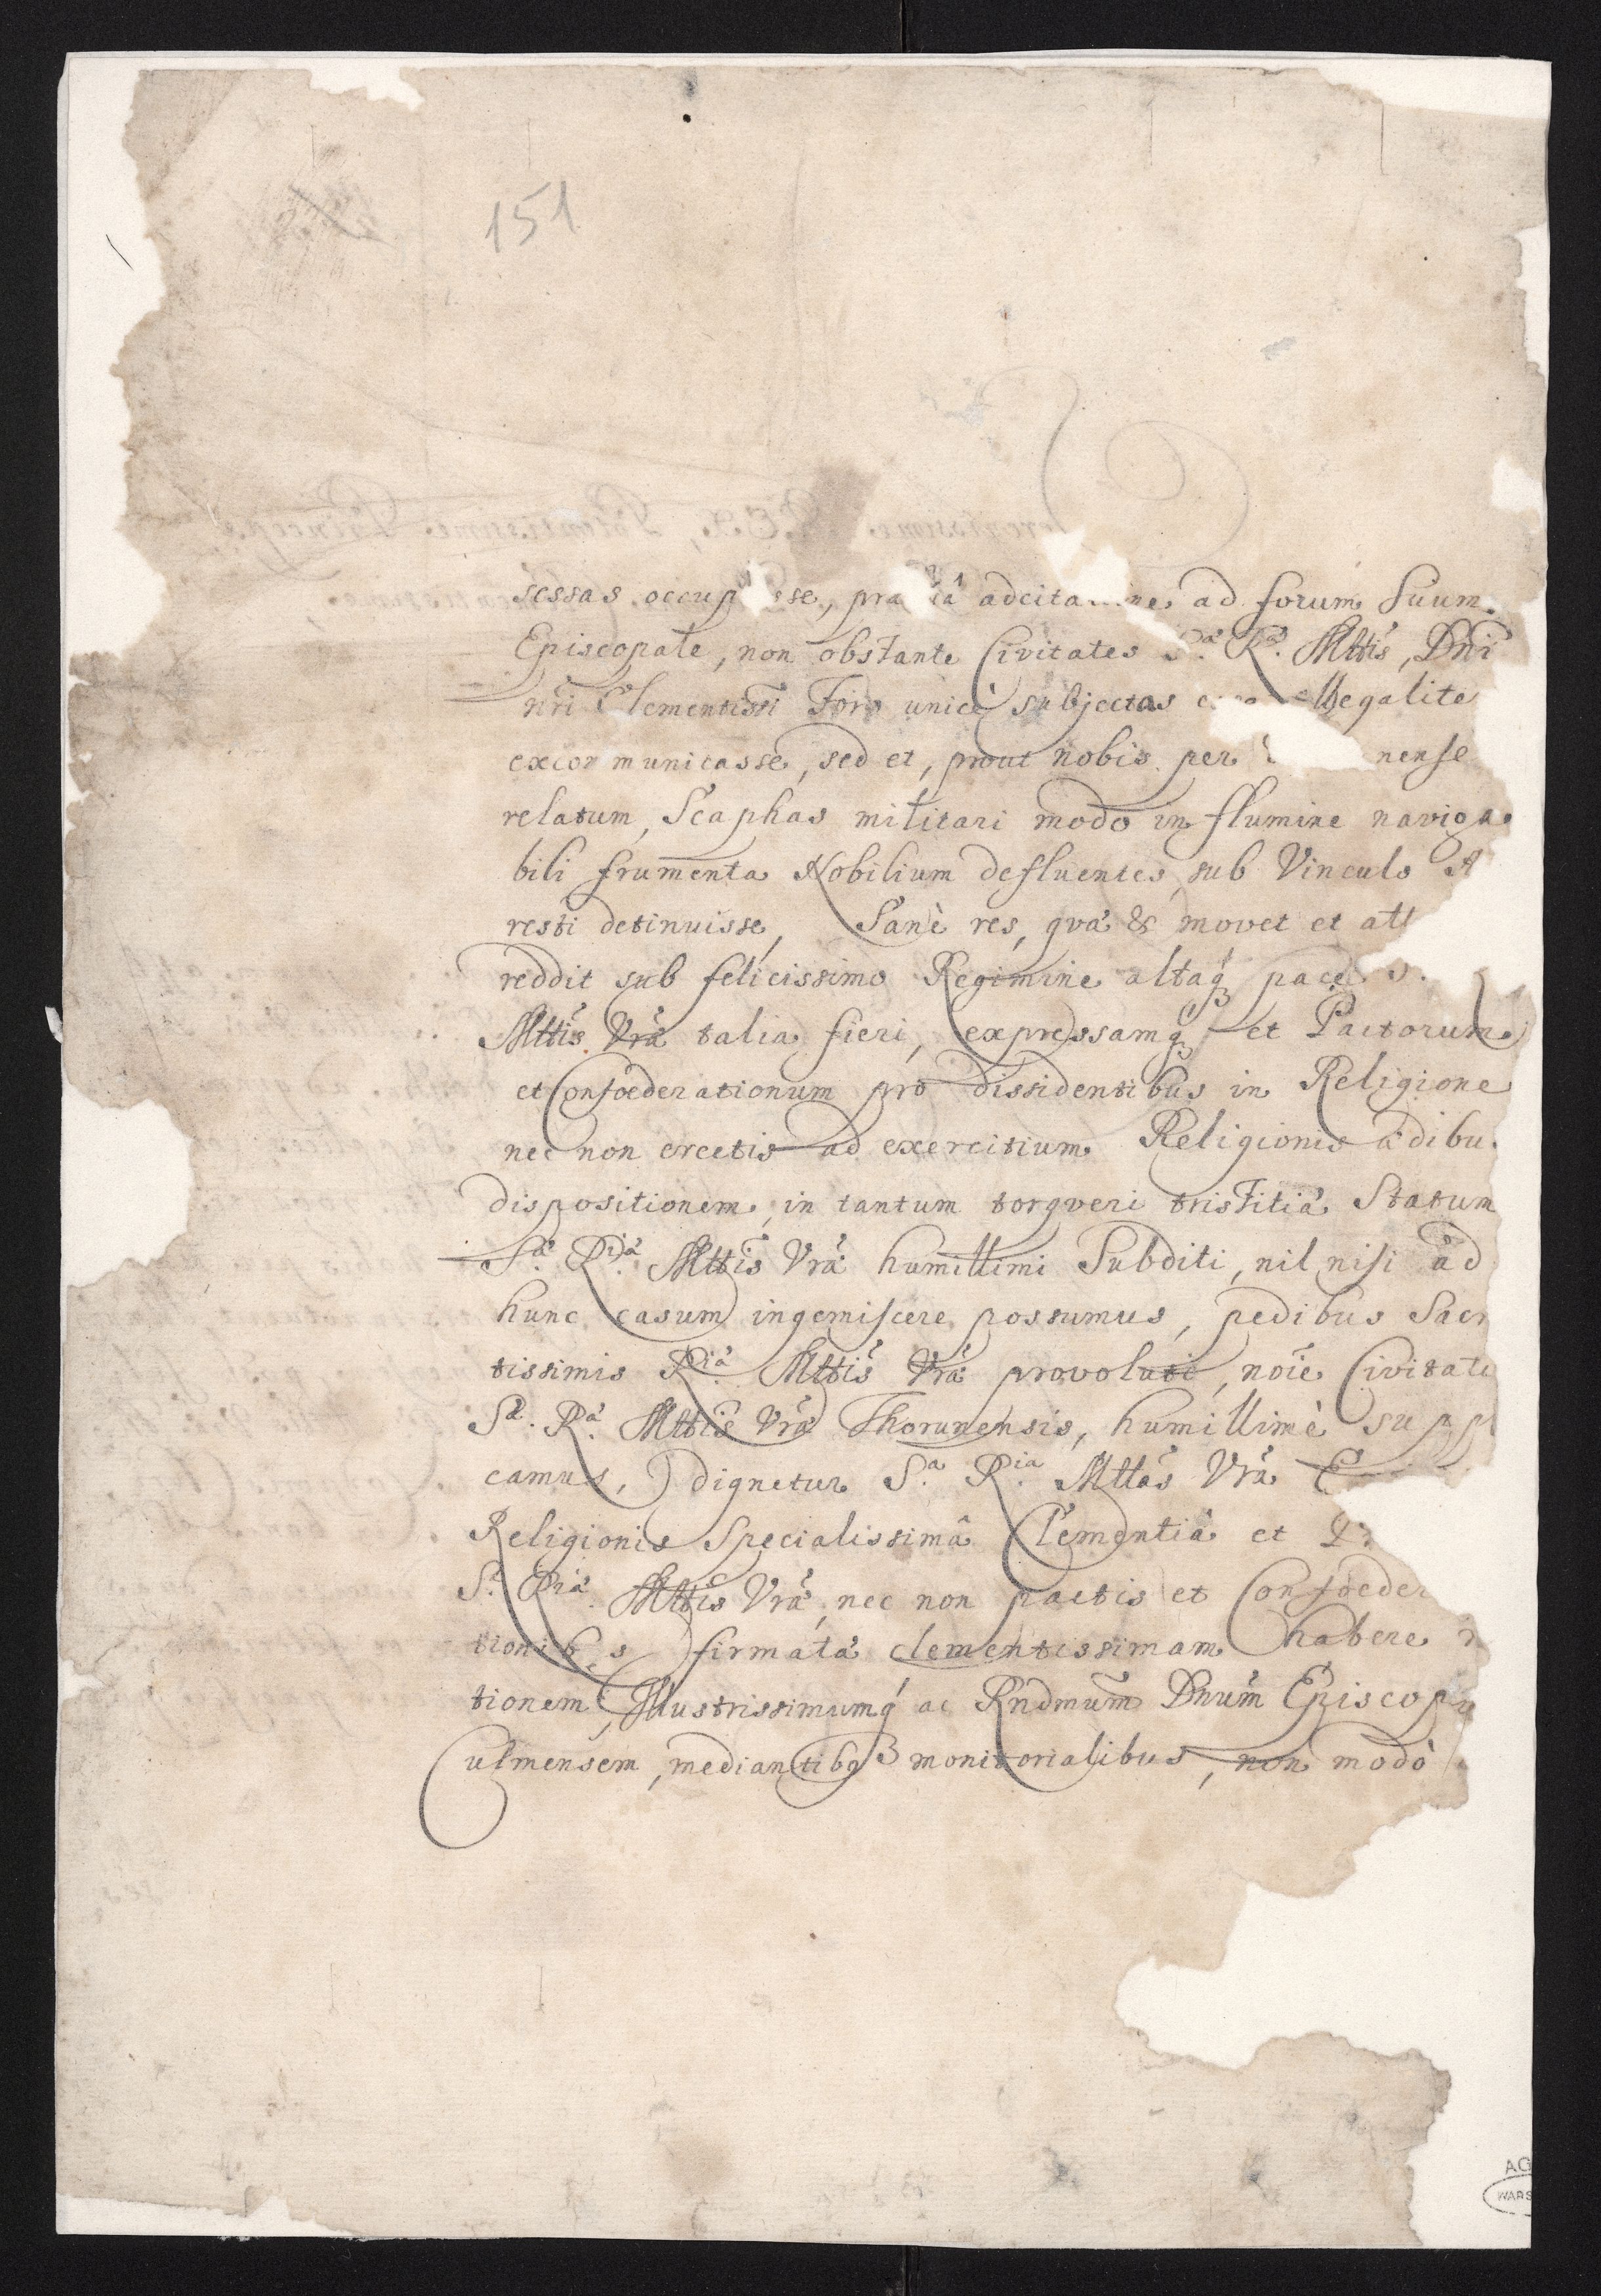 151
sessas occup sse, pra iâ adcita ne ad forum Suum
Episcopale, non obstante Civitates Sæ Ræ. Mttis, Dni
nri Clementissi Foro unicè subjectas illegalite
excommunicasse, sed et, prout nobis per nense
relatum, Scaphas militari modo in flumine naviga
bili frumenta Nobilium defluentes, sub Vinculo A
resti detinuisse, Sanè res, qvæ & movet et att
reddit sub felicissimo Regimine altaq₃ pace S.
Mttis Vræ talia fieri, expressamq₃ et Pactorum
et Confœderationum pro dissidentibus in Religione
nec non erectis ad exercitium Religionis ædibu
dispositionem, in tantum torqveri tristitiâ Statum
Sæ. Riæ. Mttis Vræ humillimi Subditi, nil nisi ad
hunc casum ingemiscere possumus, pedibus Sacr
tissimis Riæ Mttis Vræ provoluti, noie Civitati
Sæ. Ræ. Mttis Vræ Thorunensis, humillimè suppl
camus, dignetur Sa. Ria. Mttas Vra
Religionis Specialissimâ Clementiâ et
Sæ. Riæ. Mttis Vræ, nec non pactis et Confœder
tionibus firmatæ clementissimam habere r
tionem, Illustrissimumq́ ac Rndmum Dnum Episcopu
Culmensem, mediantibq₃ monitorialibus, non modò
AG
WARS